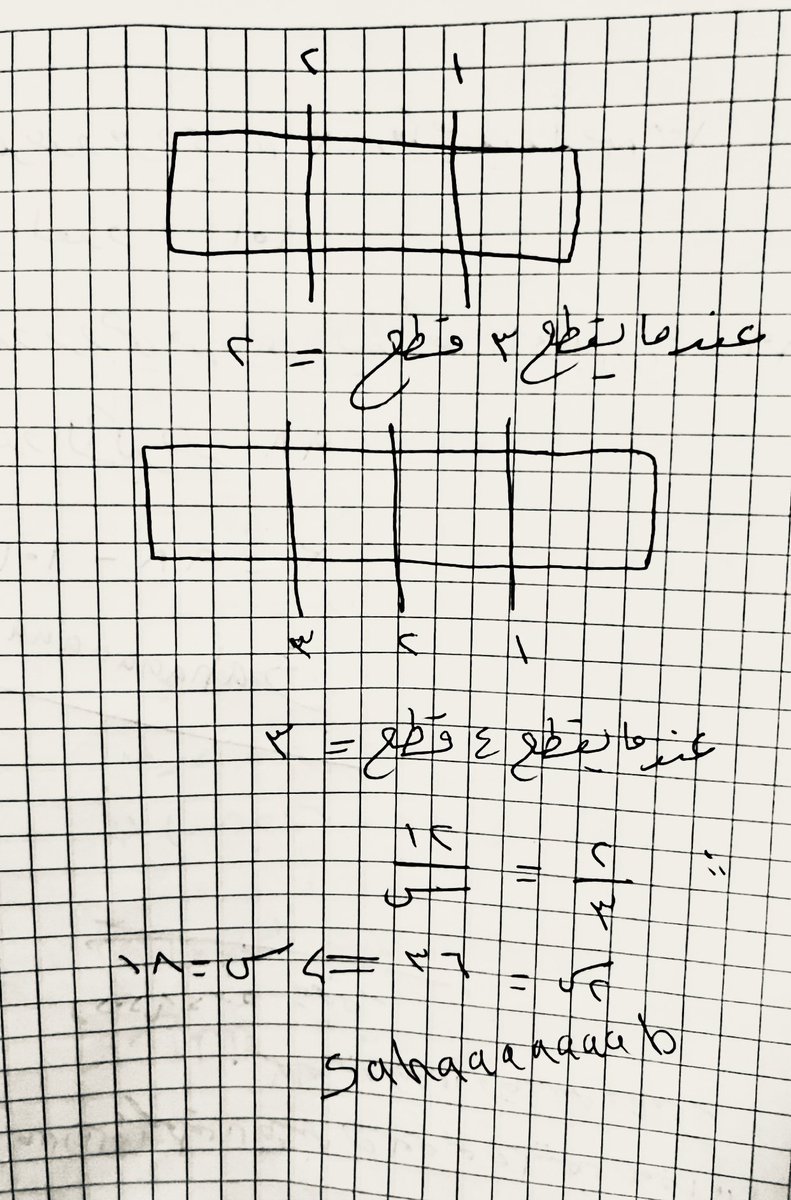 ٢ ١
عندما يقطع ٣ قطع = ٢
٣ ٢ ١
عندما يقطع ٤ قطع = ٣
∴ ٢/٣ = ١٢/س
٢س = ٣٦ => س = ١٨
Sahaaaaaaaab